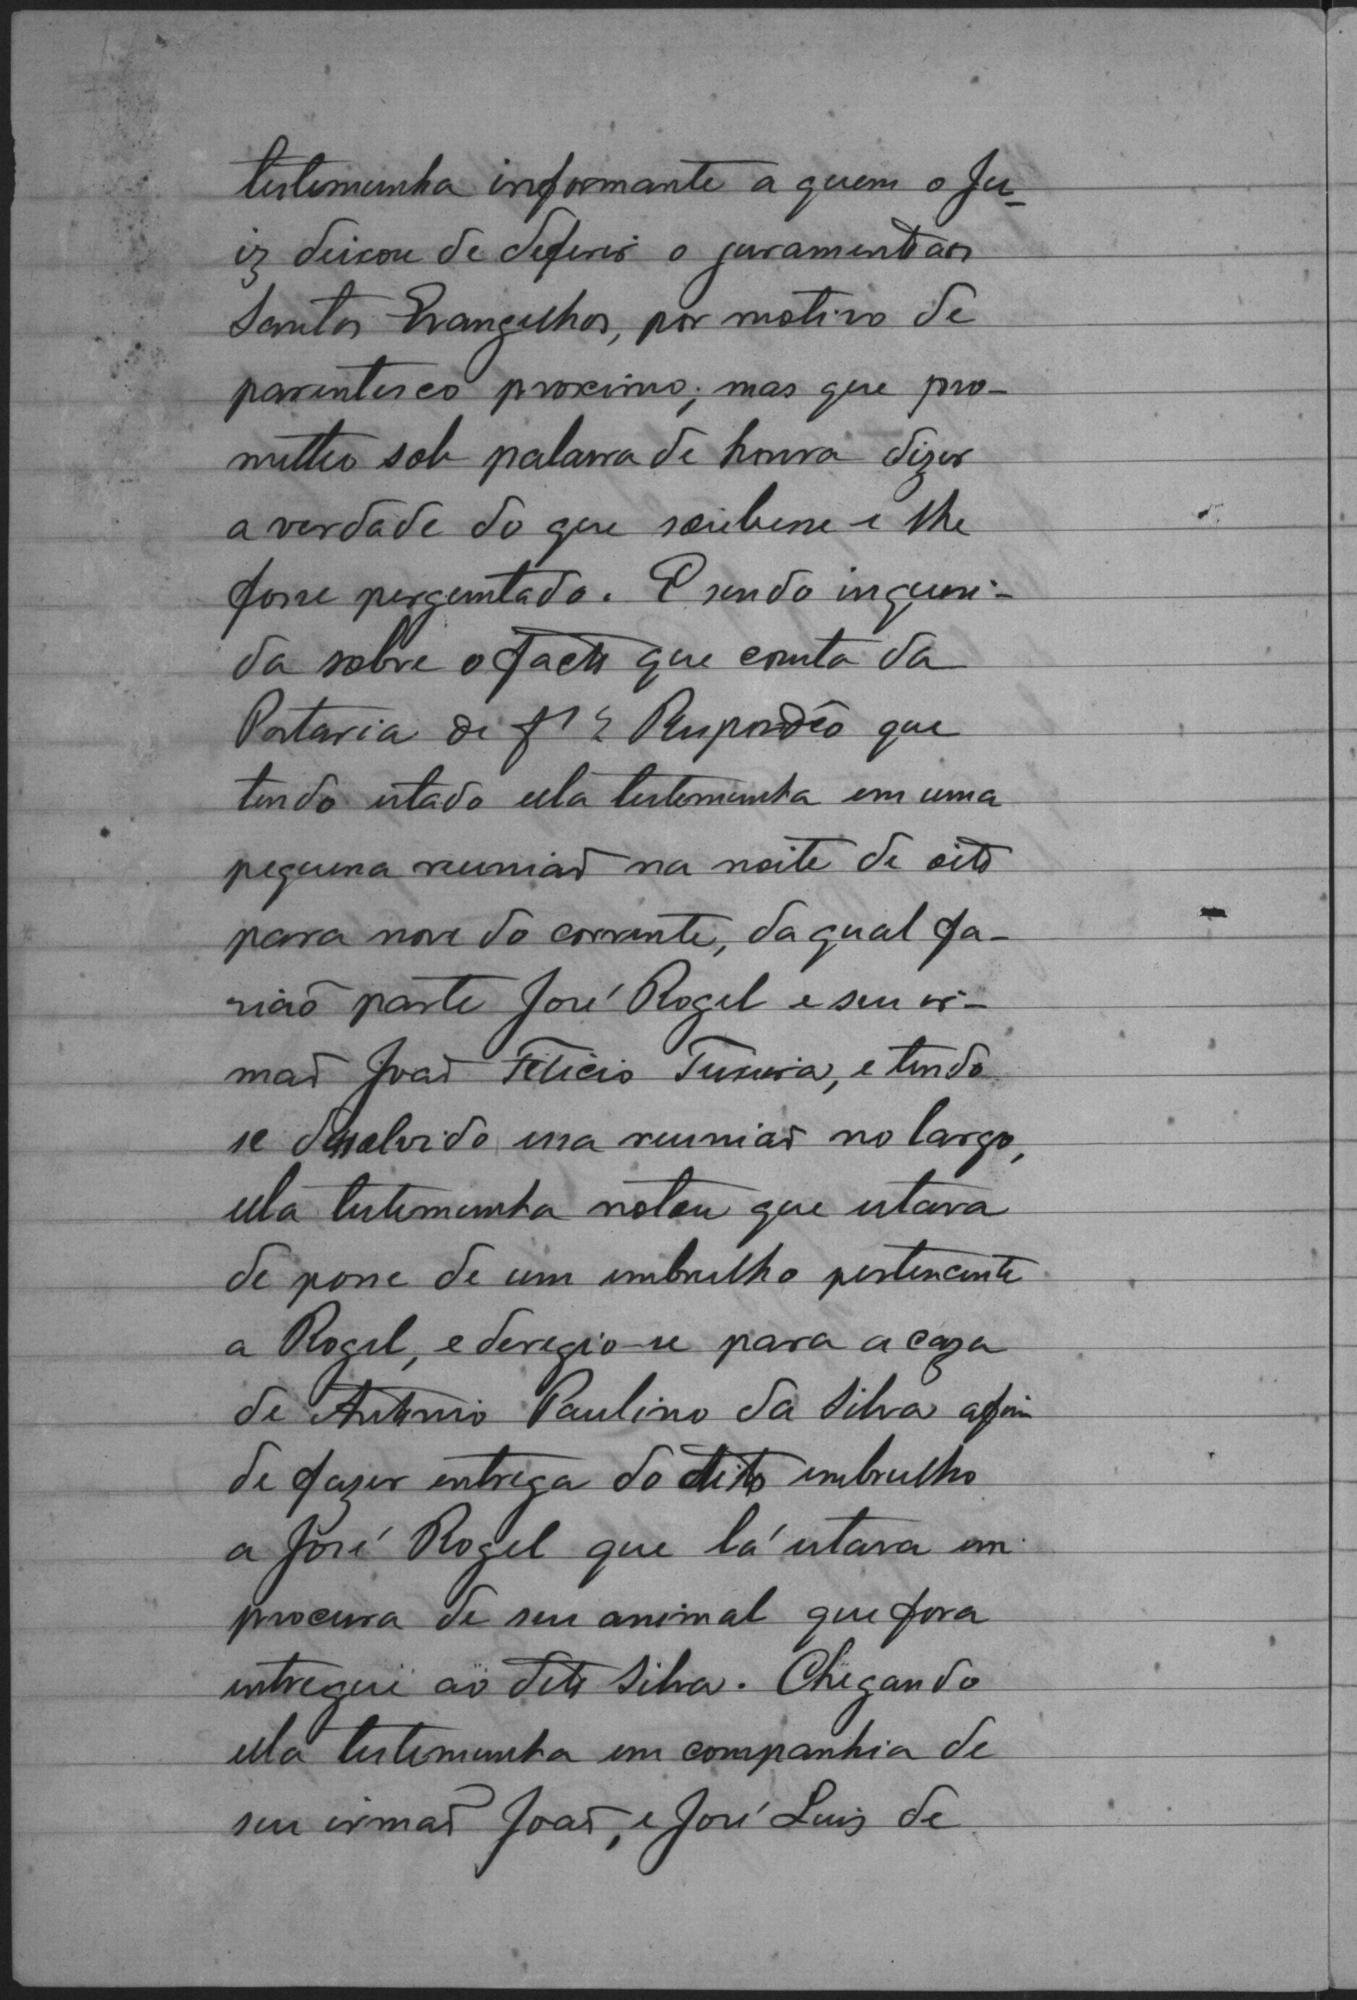 testemunha informante a quem o Ju-
iz deixou de deferir o juramento aos
Santos Evangelhos, por motivo de
parentesco proximo; mas que pro-
metteo sob palavra de honra dizer
a verdade do que soubesse e lhe
fosse perguntado. E sendo inqueri-
da sobre o facto que consta da
Portaria de f¹ 2 Respondêo que
tendo estado ella testemunha em uma
pequena reunião na noite de oito
para nove do corrente, da qual fa-
zião parte José Rogel e seu ir-
mão João Felicio Teixeira, e tendo
se dissolvido essa reunião no largo,
ella testemunha notou que estava
de posse de um embrulho pertencente
a Rogel, e deregio-se para a caza
de Antonio Paulino da Silva afim
de fazer entrega do dito embrulho
a José Rogel que lá estava em
procura de seu animal que fora
entregue ao dito Silva. Chegando
ella testemunha em companhia de
seu irmão João, e José Luis de